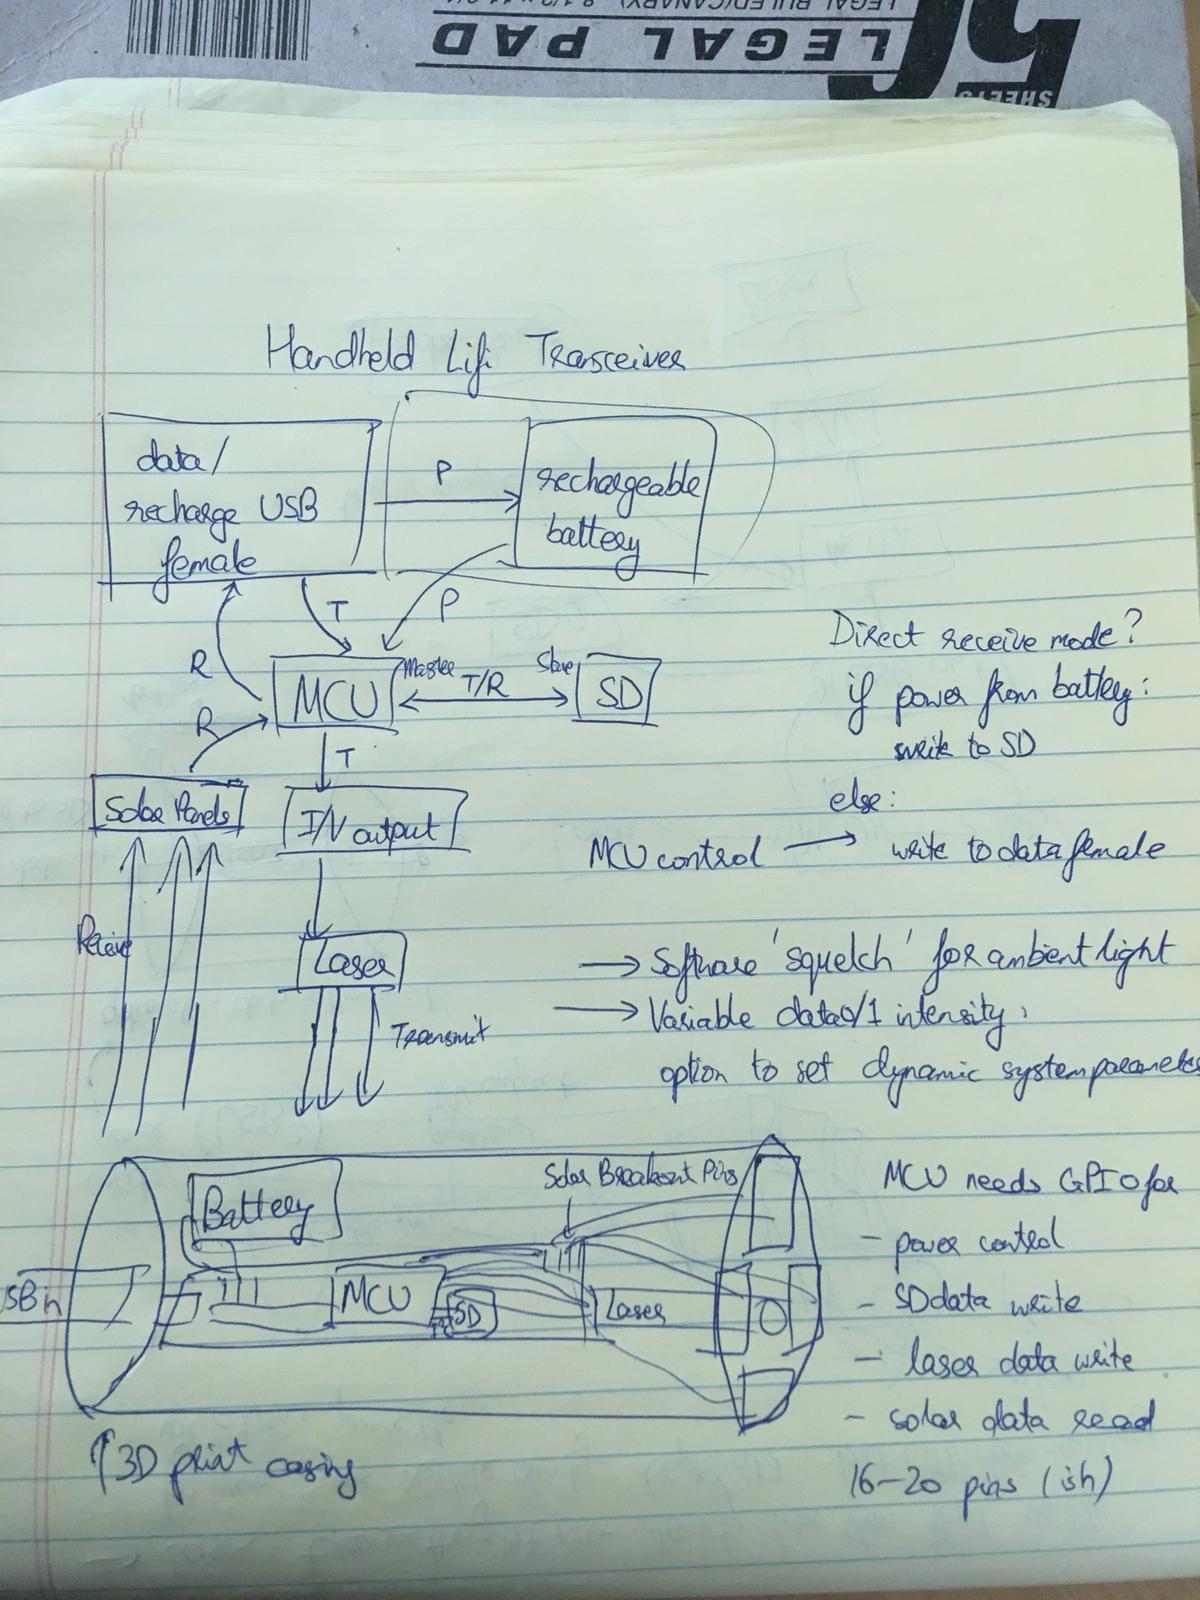 LEGAL RULED (CANARY)
LEGAL PAD
SHEETS
Handheld Lifi Transceiver
data/
recharge USB
female
P
rechargeable
battery
T
P
R
R
MCU
Master
T/R
Slave
SD
T
Solar Panels
I/V output
Laser
Transmit
Direct receive mode?
if power from battery:
write to SD
else:
MCU control → write to data female
→ Software 'squelch' for ambient light
→ Variable data 0/1 intensity,
option to set dynamic system
Battery
Solar Breakout Pins
MCU
SD
Laser
in
↑ 3D print casing
MCU needs GPIO for
- power control
- SD data write
- laser data write
- solar data read
16-20 pins (ish)